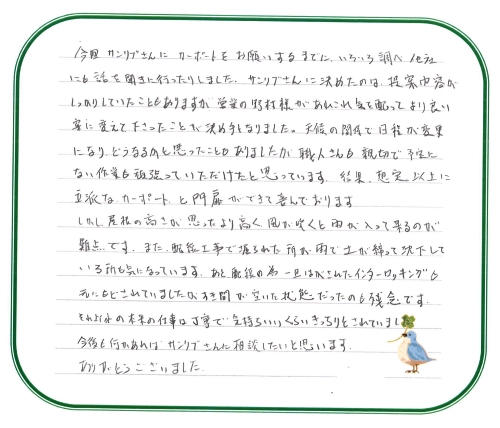 今回 サンリブさんに カーポートを お願いするまでに、いろいろ調べ 他社
にも話を聞きに行ったりしました。サンリブさんに決めたのは、提案内容が
しっかりしていたこともありますが、営業の野村様があれこれ気を配ってより良い
案に変えて下さったことが決め手となりました。天候の関係で日程が変更
になり、どうなるかと思ったこともありましたが職人さんも親切で予定に
ない作業も頑張っていただけたと思っています。結果、想定以上に
立派なカーポートと門扉ができて喜んでおります
しかし屋根の高さが思ったより高く、風が吹くと雨が入って来るのが
難点です。また、配線工事で掘られた所が雨で土が締って沈下して
いる所も気になっています。あと配線の為一旦はがされたインターロッキングも
元にもどされていましたがすき間が空いた状態だったのも残念です。
それ以外の本来の仕事は丁寧で気持ちいいくらいきっちりとされていました
今後も何かあれば サンリブさんに相談したいと思います。
ありがとうございました。